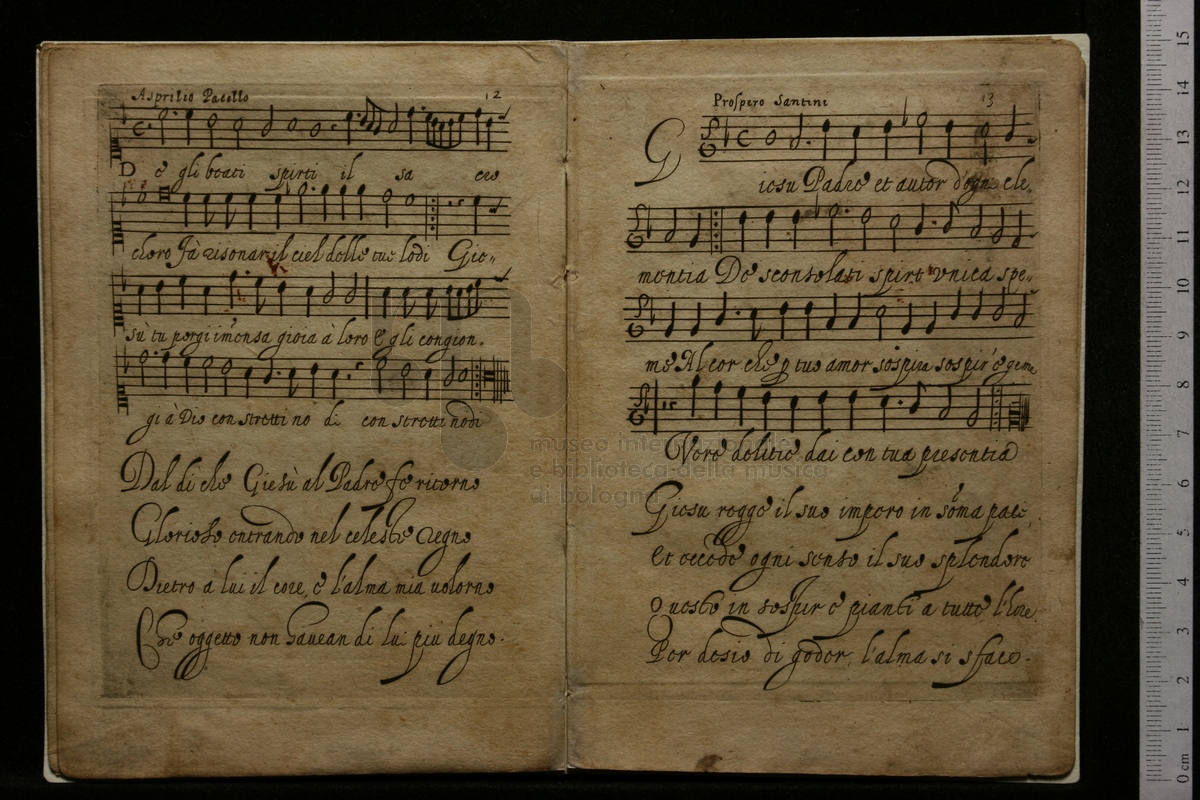 Asprilio Pacello 12
De gli beati spirti il sa cro
choro Fà risonar il ciel delle tue lodi Gie-
sù tu porgi imensa gioia à loro E gli congion-
gi à Dio con stretti no di con stretti nodi
Dal di che Giesù al Padre fe ritorno
Glorioso entrando nel celeste Regno
Dietro a lui il core, e l'alma mia volorno
Che oggetto non hauean di lui piu degno.
Prospero Santini 13
Giesu Padre et autor d'ogni cle
mentia De sconsolati spirt vnica spe-
me Al cor che p tuo amor sospira sospir' e geme
Vere delitie dai con tua presentia
Giesu regge il suo impero in soma pace,
Et eccede ogni senso il suo splendore
Questo in sospir e pianti a tutte l'hore
Per desio di goder, l'alma si sface.
museo internazionale
e biblioteca della musica
di bologna
0 cm 1 2 3 4 5 6 7 8 9 10 11 12 13 14 15